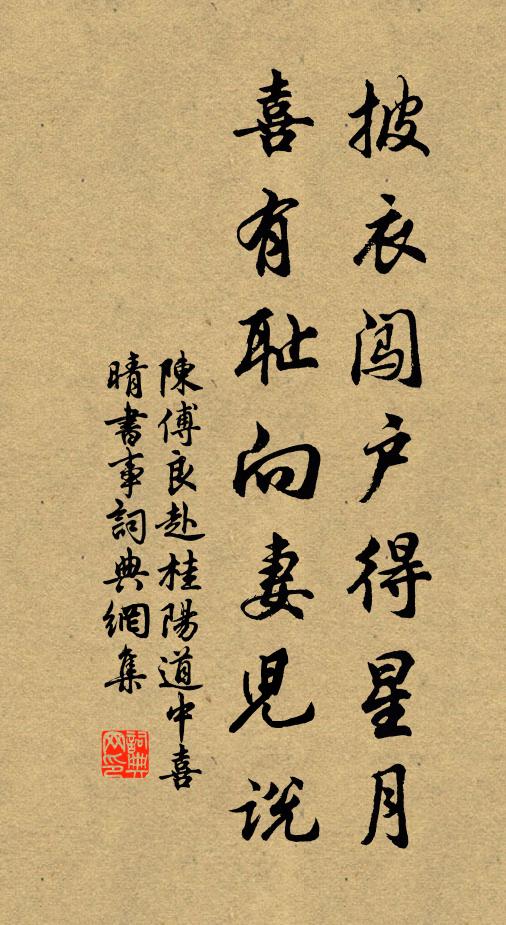 披衣闯户得星月
喜有耻向妻児说
陳傅良赴桂陽道中喜
晴書事詞典網集
詞典网印